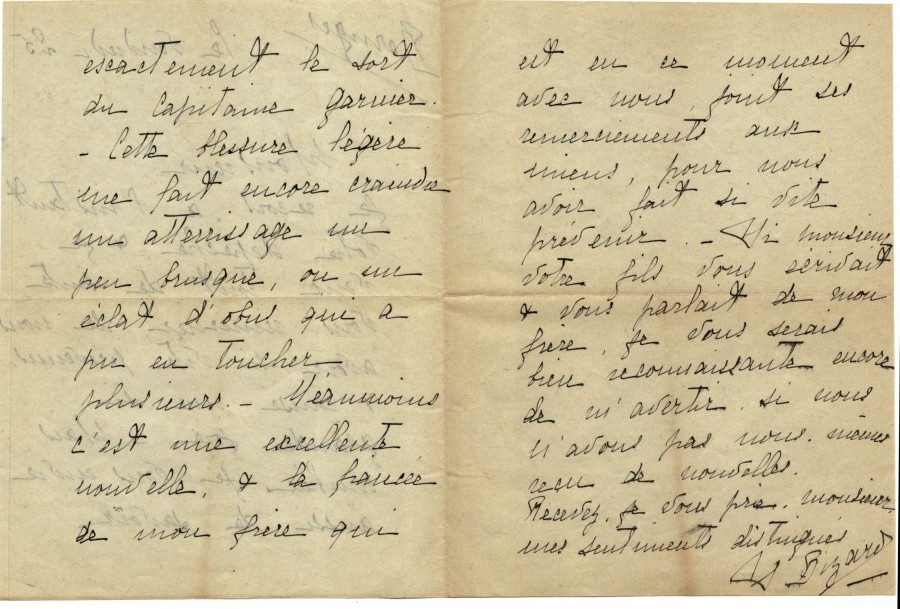 escactement le sort
du Capitaine Garnier.
- Cette blessure légère
me fait encore craindre
un atterrissage un
peu brusque, ou un
éclat d'obus qui a
pu en toucher
plusieurs. - Néanmoins
c'est une excellente
nouvelle, & la fiancée
de mon frère qui
est en ce moment
avec nous, joint ses
remerciements aux
miens, pour nous
avoir fait si vite
prévenir. - Si monsieur
votre fils vous écrivait
& vous parlait de mon
frère, je vous serais
bien reconnaissante encore
de m'avertir. si nous
n'avons pas nous-mêmes
reçu de nouvelles.
Recevez, je vous prie, monsieur
mes sentiments distingués